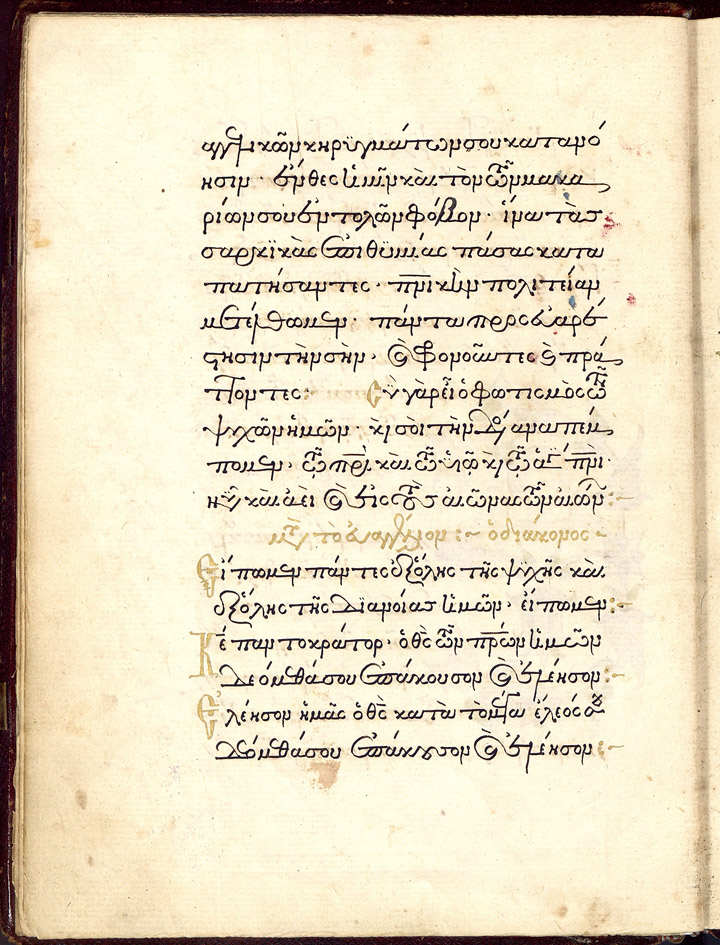 αγγελικῶν κηρϋγμάτων σου κατανό
ησιν · ἔνθες ἡμῖν καὶ τὸν τῶν μακα
ρίων σου ἐντολῶν φόβον · ἵνα τὰς
σαρκϊκὰς ἐπιθϋμίας πάσας κατα
πατήσαντες · πνικὴν πολιτείαν
μετέλθωμεν · πάντα πρὸς εὐαρέ
στησιν τὴν σὴν · καὶ φρονοῦντες καὶ πρά
ττοντες : Σὺ γὰρ εἶ ὁ φωτισμὸς τῶν
ψυχῶν ἡμῶν · κ̀ σοὶ τὴν δόξαν ἀναπέμ
πομεν · τῷ πρὶ καὶ τῷ υἱῷ κ̀ τῷ ἁγίω πνι ·
νῦν καὶ ἀεὶ καὶ εἰς τοὺς αἰῶνας τῶν αἰώνων :~
μετὰ τὸ εὐαγγέλιον :~ ὁ διάκονος ~
Εἴπωμεν πάντες ἐξ ὅλης τῆς ψυχῆς καὶ
ἐξ ὅλης τῆς διανοίας ἡμῶν · εἴπωμεν :~
Κέ παντοκράτορ · ὁ θς τῶν πρων ἡμῶν
δεόμεθά σου ἐπάκουσον καὶ ἐλέησον :~
Ἐλέησον ἡμᾶς ὁ θς κατὰ τὸ μέγα ἔλεός σου
δεόμεθά σου ἐπάκουσον καὶ ἐλέησον :~